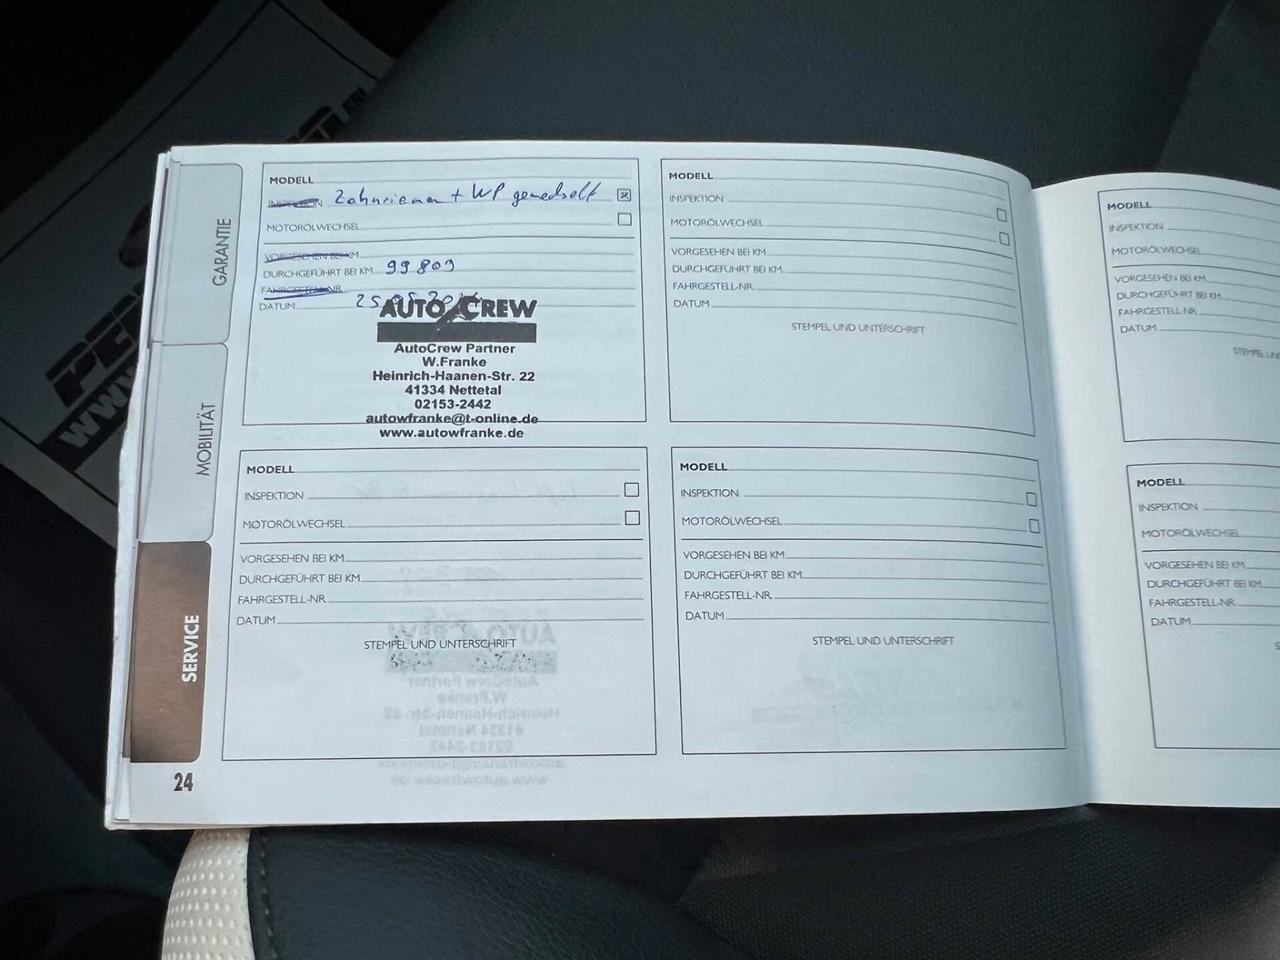 GARANTIE
MOBILITÄT
SERVICE
24
MODELL
INSPEKTION Zahnriemen + WP gewechselt
MOTORÖLWECHSEL
VORGESEHEN BEI KM
DURCHGEFÜHRT BEI KM 99809
FAHRGESTELL-NR.
DATUM
AUTO CREW
AutoCrew Partner
W.Franke
Heinrich-Haanen-Str. 22
41334 Nettetal
02153-2442
autowfranke@t-online.de
www.autowfranke.de
MODELL
INSPEKTION
MOTORÖLWECHSEL
VORGESEHEN BEI KM
DURCHGEFÜHRT BEI KM
FAHRGESTELL-NR.
DATUM
STEMPEL UND UNTERSCHRIFT
MODELL
INSPEKTION
MOTORÖLWECHSEL
VORGESEHEN BEI KM
DURCHGEFÜHRT BEI KM
FAHRGESTELL-NR.
DATUM
STEMPEL UND UNTERSCHRIFT
MODELL
INSPEKTION
MOTORÖLWECHSEL
VORGESEHEN BEI KM
DURCHGEFÜHRT BEI KM
FAHRGESTELL-NR.
DATUM
STEMPEL UND UNTERSCHRIFT
MODELL
INSPEKTION
MOTORÖLWECHSEL
VORGESEHEN BEI KM
DURCHGEFÜHRT BEI KM
FAHRGESTELL-NR.
DATUM
MODELL
INSPEKTION
MOTORÖLWECHSEL
VORGESEHEN BEI KM
DURCHGEFÜHRT BEI KM
FAHRGESTELL-NR.
DATUM